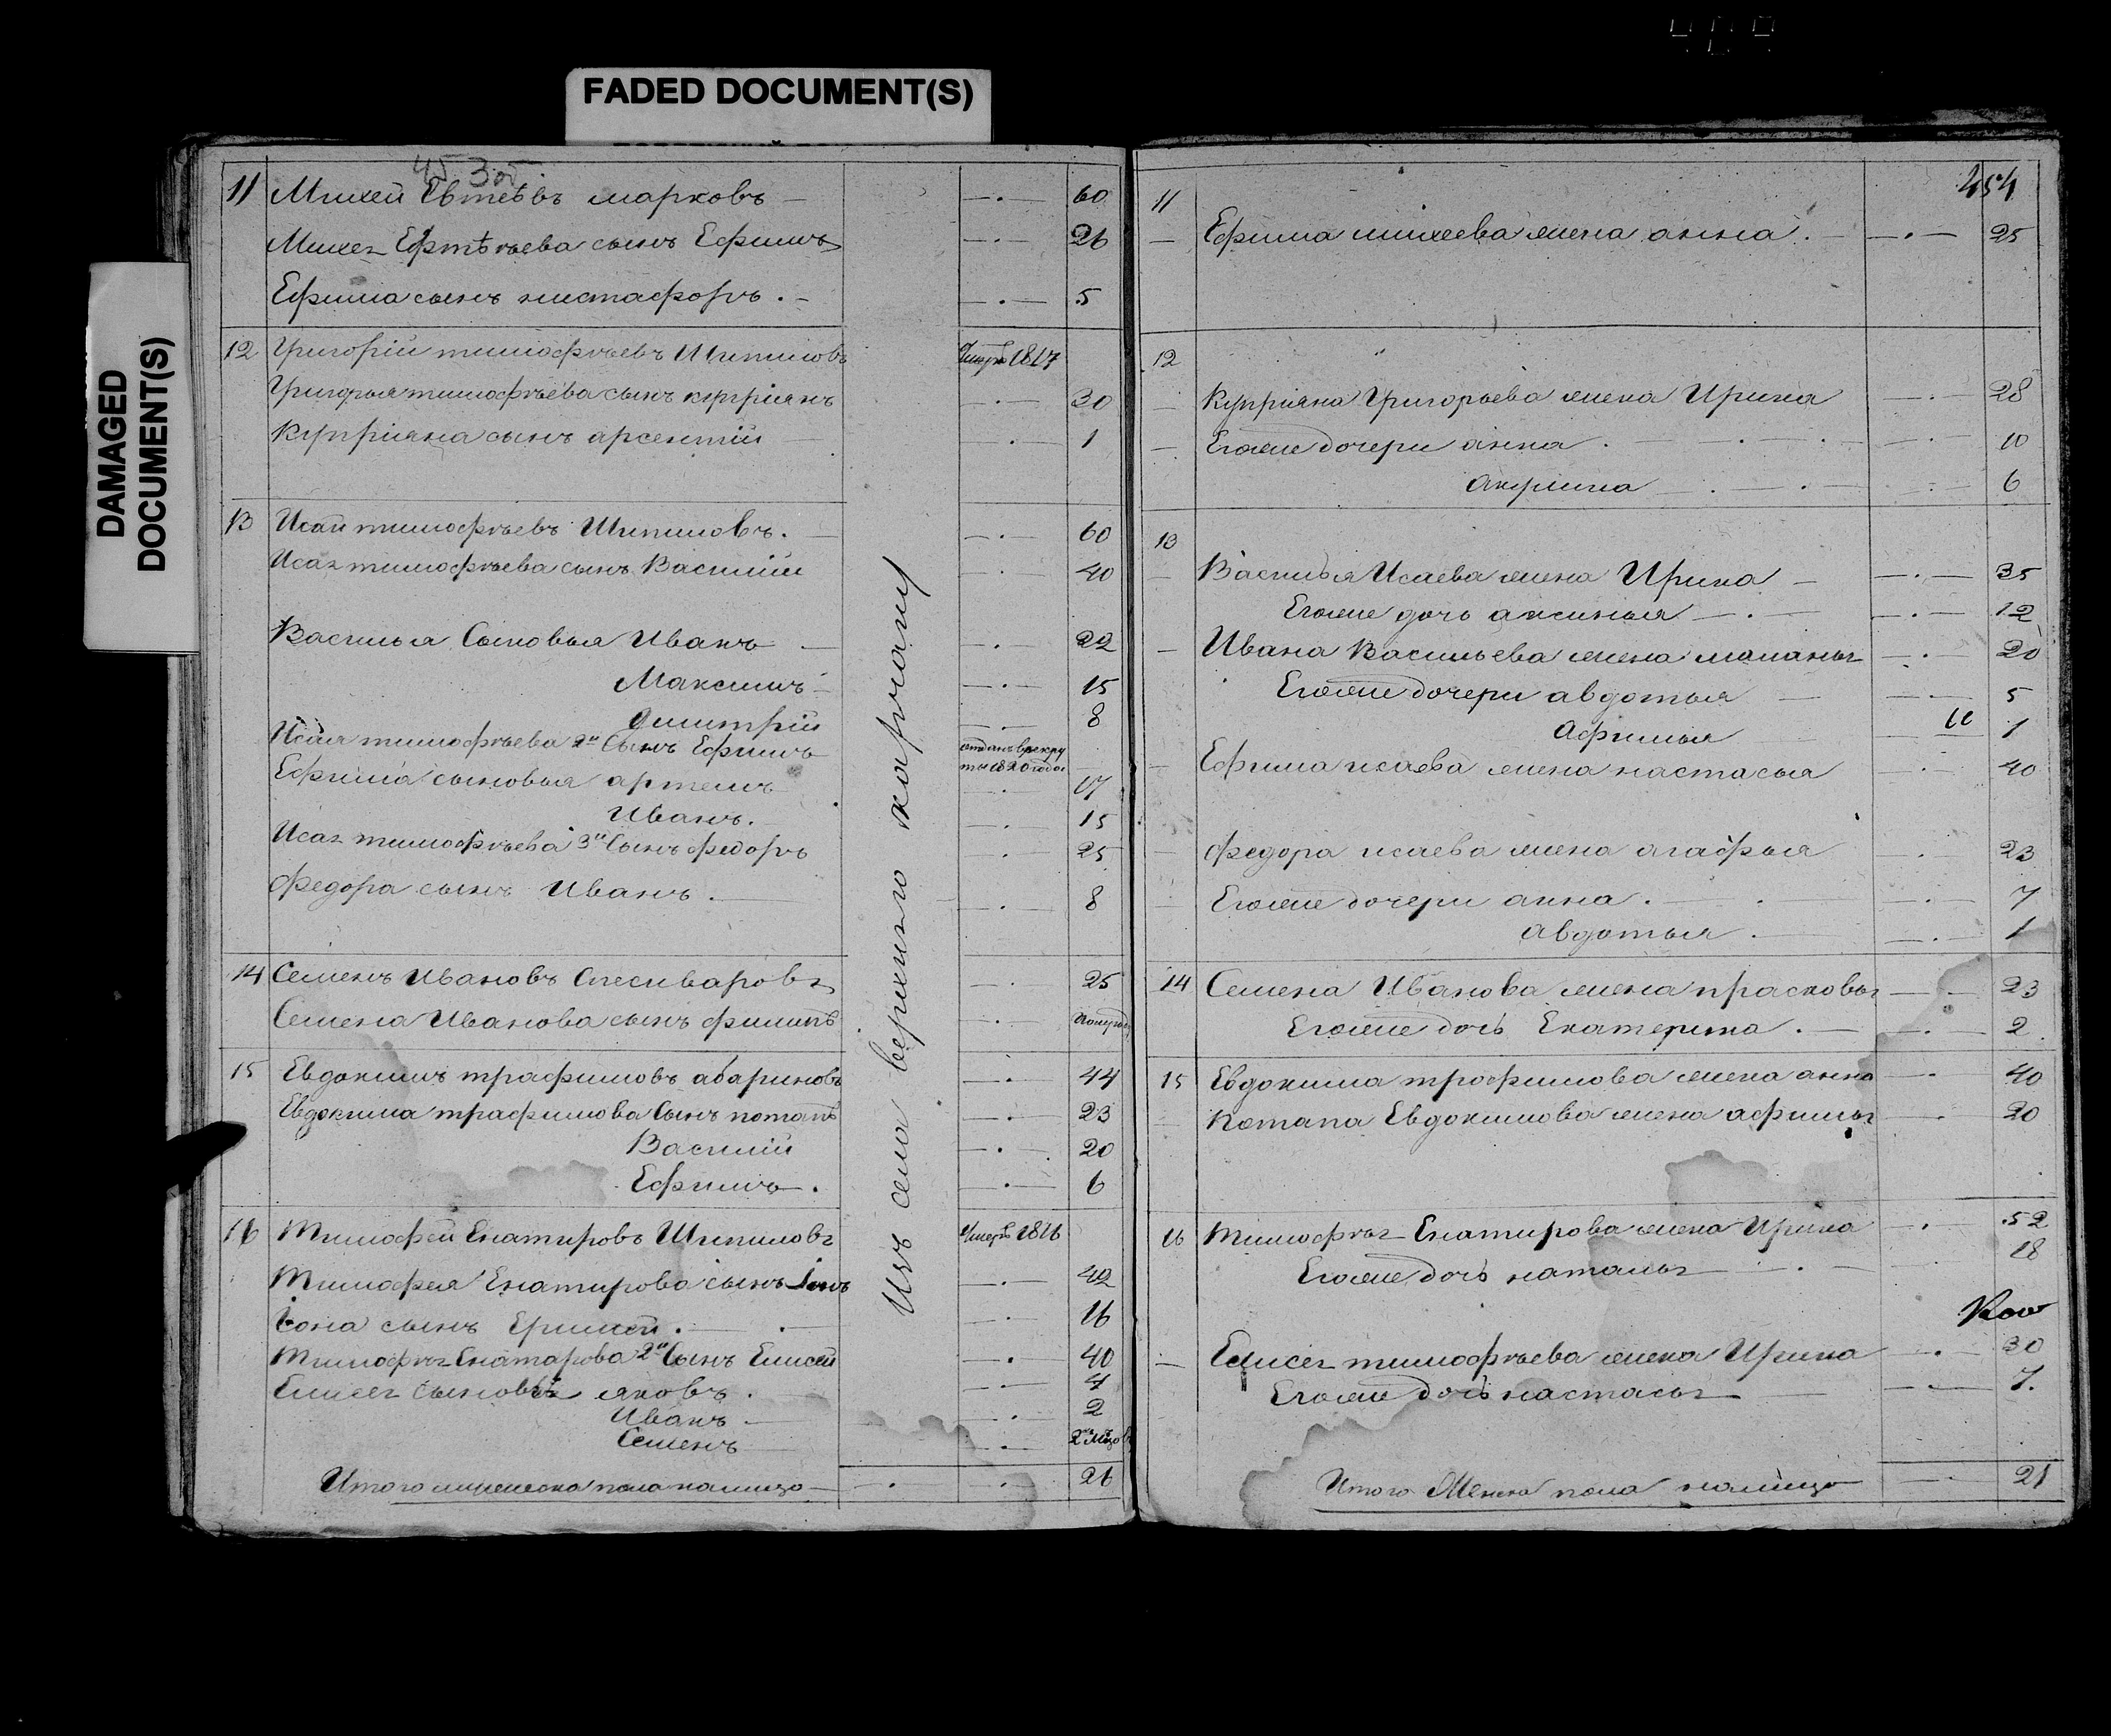 FADED DOCUMENT(S)
DAMAGED
DOCUMENT(S)
453об
11 Михей Евтеѣвъ марковъ 60
сынъ Ефимъ 26
Ефима сынъ 5
12 Григорій тимофѣевъ Шипиловъ 1817
Григорья тимофѣева сынъ купріянъ 30
Купріяна сынъ арсентій 1
13 Исай тимофѣевъ Шипиловъ 60
Исая тимофѣева сынъ Василій 40
Василья Сыновья Иванъ 22
Максимъ 15
Дмитрій 8
Исая тимофѣева 2й Сынъ Ефимъ отданъ в рекру
ты 1820 года
Ефима сыновья артемъ 17
Иванъ 15
Исая тимофѣева 3й Сынъ федоръ 25
федора сынъ Иванъ 8
14 Семенъ Ивановъ 25
Семена Иванова сынъ филипъ
15 Евдокимъ трафимовъ абариновъ 44
Евдокима трафимова Сынъ потапъ 23
Василій 20
Ефимъ 6
16 Тимофей Енатировъ Шипиловъ 1816
Тимофея Енатирова сынъ 42
Іона сынъ Ермей 16
Тимофея 2й Сынъ Елисей 40
Елисея Сыновья яковъ 4
Иванъ 2
Семенъ 2
Итого мужеска пола налицо 26
Изъ села верхнего
454
11
Ефима михеева жена анна 25
12
Купріяна Григорьева жена Ирина 28
Егоже дочери анна 10
акулина 6
13
Василья Исаева жена Ирина 35
Егоже дочь аксинья 12
Ивана Васильева жена маланья 20
Егоже дочери авдотья 5
Афимья 1
Ефима исаева жена настасья 40
федора исаева жена агафья 23
Егоже дочери анна 7
авдотья 1
14 Семена Иванова жена прасковья 23
Егоже дочь Екатерина 2
15 Евдокима трофимова жена анна 40
Потапа Евдокимова жена афимья 20
16 Тимофѣя Енатирова жена Ирина 52
Егоже дочь наталья 18
Елисея тимофѣева жена Ирина 30
Егоже дочь настасья 7
Итого Женска пола налицо 21